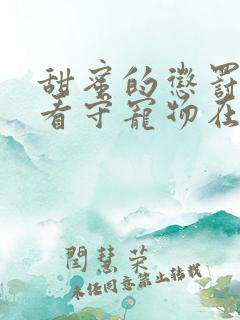 甜蜜的懲罰
看守寵物在
閆慧榮
未经同意禁止转载